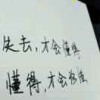 失去,才会懂得
懂得,才会珍惜